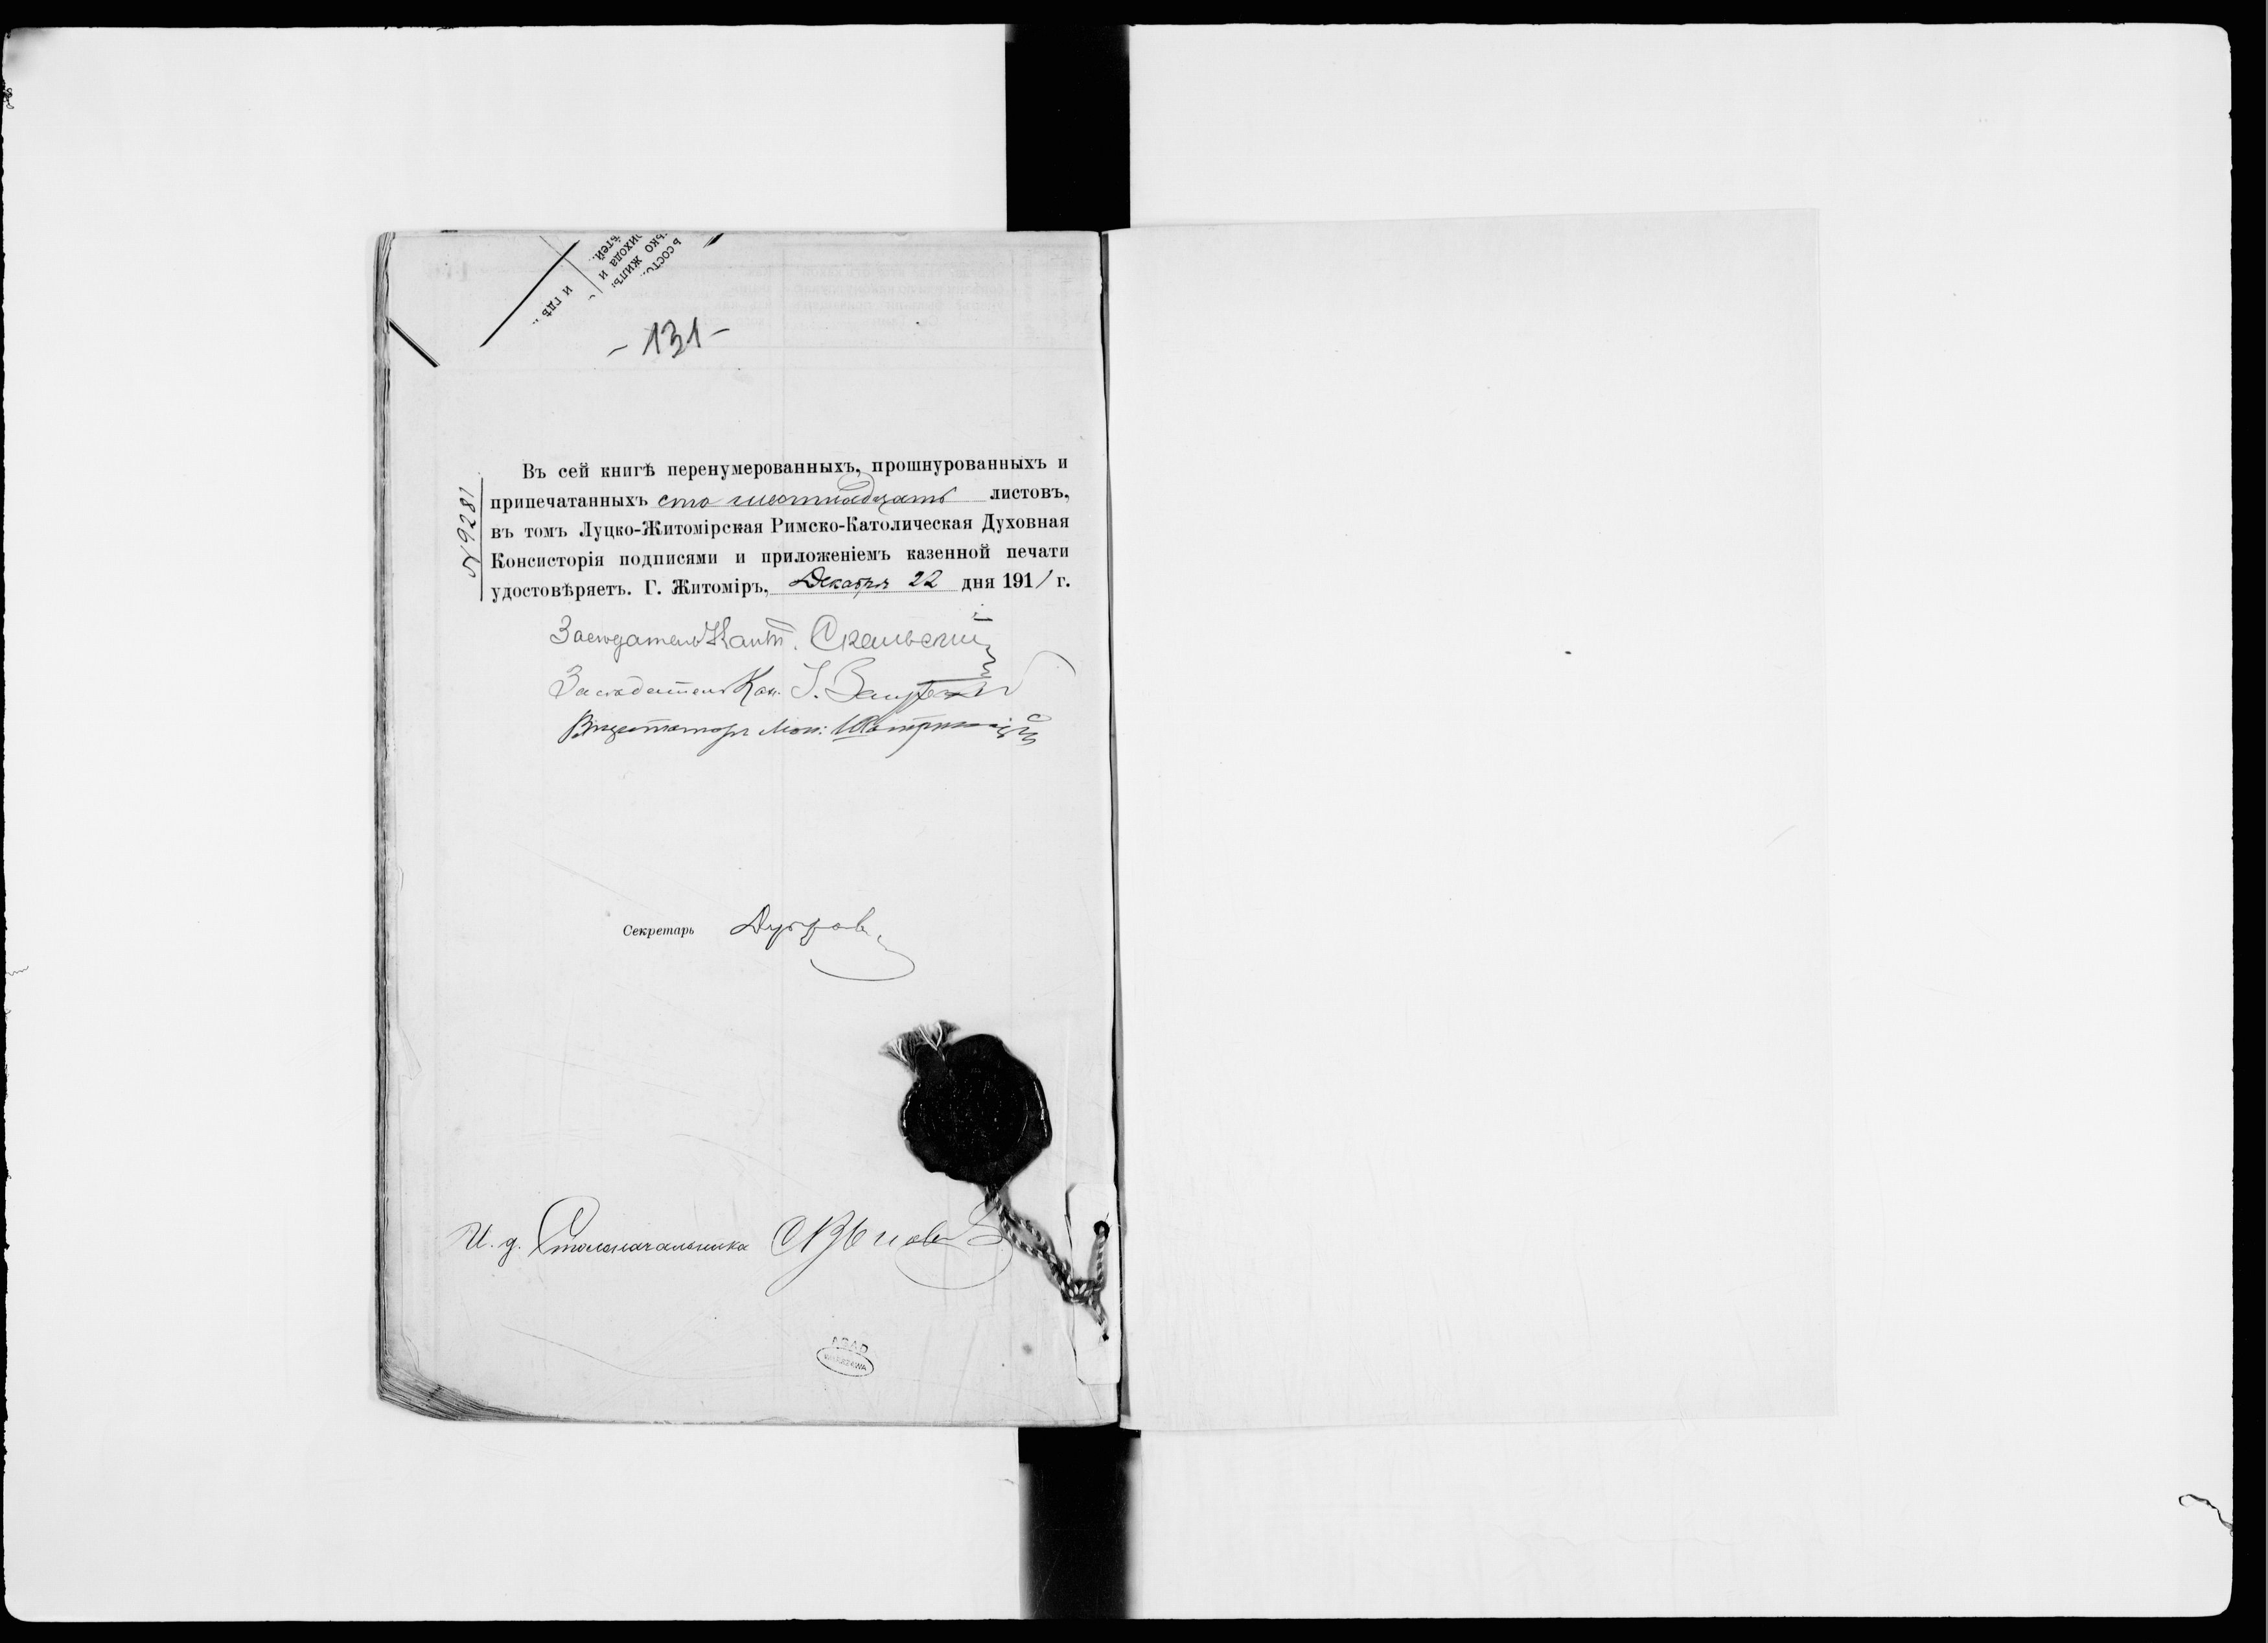 - 131 -
№ 9281
Въ сей книгѣ перенумерованныхъ, прошнурованныхъ и
припечатанныхъ сто шестнадцать листовъ,
въ томъ Луцко-Житомірская Римско-Католическая Духовная
Консисторія подписями и приложеніемъ казенной печати
удостовѣряетъ. Г. Житоміръ, Декабря 22 дня 1911 г.
Засѣдатель Скальскій
Засѣдатель Кан.
Секретарь
И. д. Столоначальника
AGAD
WARSZAWA